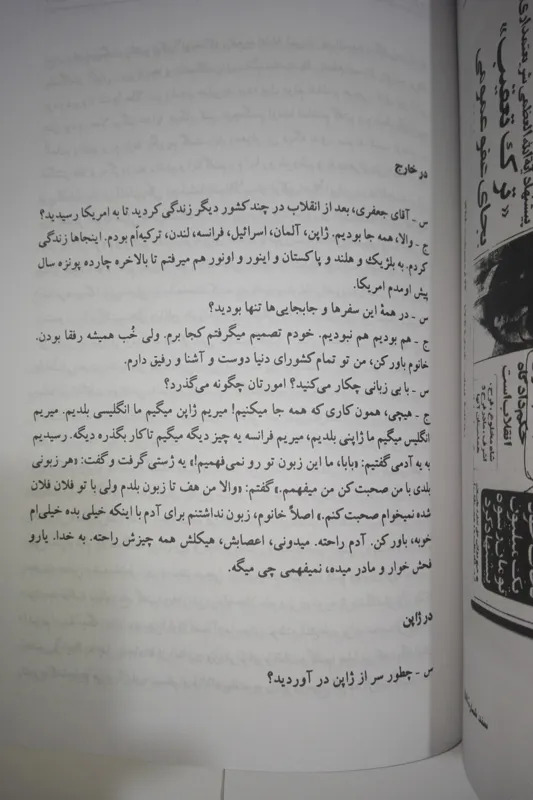 در خارج
س - آقای جعفری، بعد از انقلاب در چند کشور دیگر زندگی کردید تا به امریکا رسیدید؟
ج - والا، همه جا بودیم. ژاپن، آلمان، اسرائیل، فرانسه، لندن، ترکیه‌اَم بودم. اینجاها زندگی
کردم. به بلژیک و هلند و پاکستان و اینور و اونور هم میرفتم تا بالاخره چارده پونزه سال
پیش اومدم امریکا.
س - در همۀ این سفرها و جابجایی‌ها تنها بودید؟
ج - هم بودیم هم نبودیم. خودم تصمیم میگرفتم کجا برم. ولی خُب همیشه رفقا بودن.
خانوم باور کن، من تو تمام کشورای دنیا دوست و آشنا و رفیق دارم.
س - با بی زبانی چکار می‌کنید؟ امورتان چگونه می‌گذرد؟
ج - هیچی، همون کاری که همه جا میکنیم! میریم ژاپن میگیم ما انگلیسی بلدیم. میریم
انگلیس میگیم ما ژاپنی بلدیم، میریم فرانسه یه چیز دیگه میگیم تا کار بگذره دیگه. رسیدیم
به یه آدمی گفتیم: «بابا، ما این زبون تو رو نمی‌فهمیم!» یه ژستی گرفت و گفت: «هر زبونی
بلدی با من صحبت کن من میفهمم.» گفتم: «والا من هف تا زبون بلدم ولی با تو فلان فلان
شده نمیخوام صحبت کنم.» اصلاً خانوم، زبون نداشتنم برای آدم با اینکه خیلی بده خیلی‌ام
خوبه، باور کن. آدم راحته. میدونی، اعصابش، هیکلش همه چیزش راحته. به خدا. یارو
فحش خوار و مادر میده، نمیفهمی چی میگه.
در ژاپن
س - چطور سر از ژاپن در آوردید؟
پیشنهاد آیةالله العظمی شریعتمداری
«ترک تعقیب»
بجای عفو عمومی
حکم دادگاه
انقلاب است